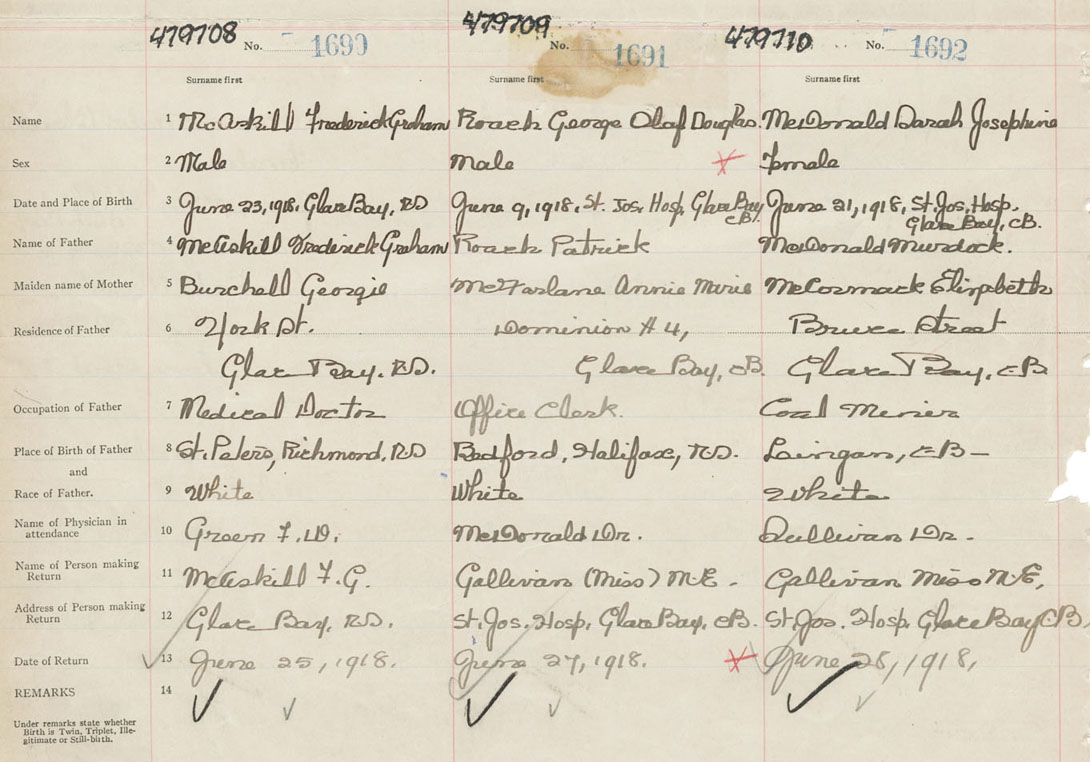 479708 No. 1690 479709 No. 1691 479710 No. 1692
Surname first Surname first Surname first
Name 1 McAskill Frederick Graham Roach George Olaf Douglas. McDonald Sarah Josephine
Sex 2 Male Male Female
Date and Place of Birth 3 June 23, 1918. Glace Bay, N.S June 9, 1918, St. Jos. Hosp, Glace Bay C.B. June 21, 1918, St. Jos. Hosp. Glace Bay, C.B.
Name of Father 4 McAskill Frederick Graham Roach Patrick McDonald Murdock.
Maiden name of Mother 5 Burchell Georgie McFarlane Annie Marie McCormack Elizabeth
Residence of Father 6 York St. Dominion # 4, Bruce Street
Glace Bay. N.S. Glace Bay, C.B. Glace Bay, C.B
Occupation of Father 7 Medical Doctor Office Clerk. Coal Miner
Place of Birth of Father 8 St. Peters, Richmond, N.S Bedford, Halifax, N.S. Lingan, C.B–
and
Race of Father. 9 White White White
Name of Physician in attendance 10 Green F. W. McDonald Dr. Sullivan Dr.
Name of Person making Return 11 McAskill F. G. Gallivan (Miss) M.E. Gallivan Miss M.E,
Address of Person making Return 12 Glace Bay, N.S. St. Jos. Hosp, Glace Bay, C.B. St. Jos. Hosp, Glace Bay C.B,
Date of Return 13 June 25, 1918. June 27, 1918. June 28, 1918,
REMARKS 14
Under remarks state whether
Birth is Twin, Triplet, Ille-
gitimate or Still-birth.